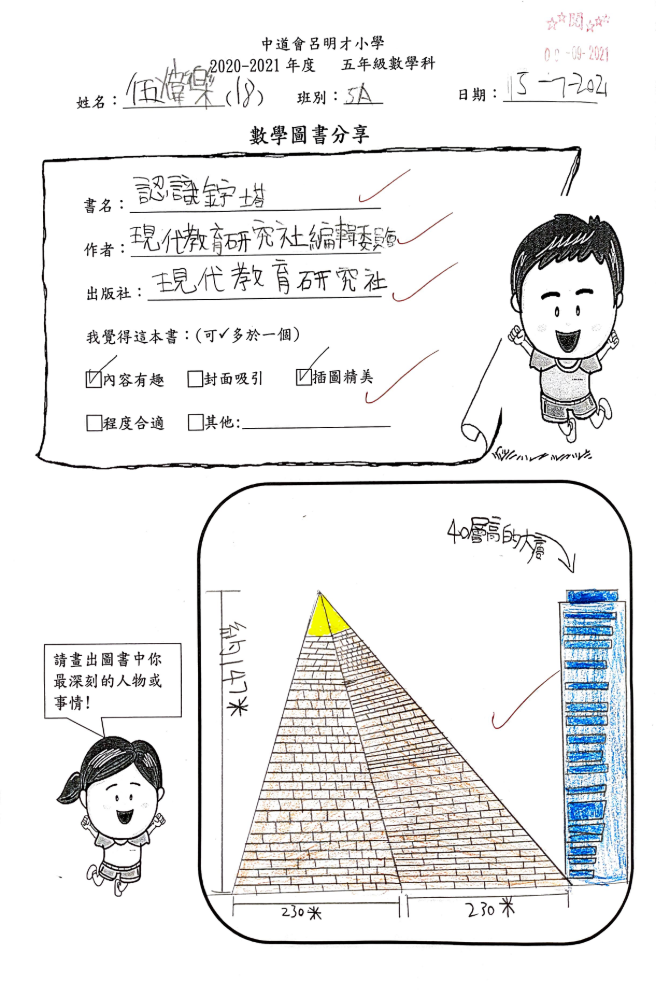 閱
中道會呂明才小學
08-09-2021
2020-2021 年度 五年級數學科
姓名：伍偉樂(18) 班別：5A 日期：15-7-2021
數學圖書分享
書名：認識金字塔
作者：現代教育研究社編輯委員會
出版社：現代教育研究社
我覺得這本書：(可✓多於一個)
☑內容有趣 □封面吸引 ☑插圖精美
□程度合適 □其他:
40層高的大廈
約147米
請畫出圖書中你
最深刻的人物或
事情!
230米 230米